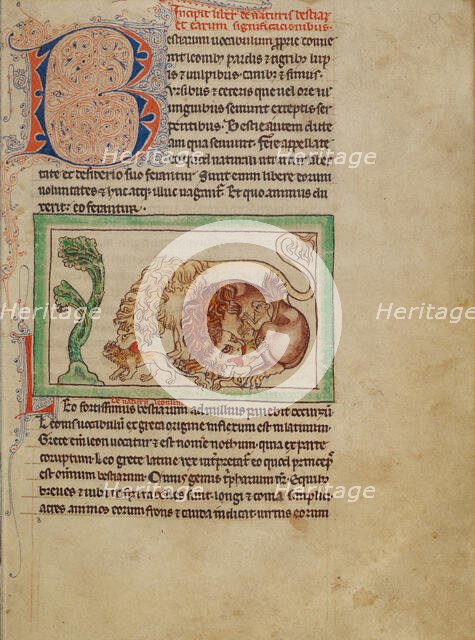 Incipit liber de naturis bestiarum
et earum significacionibus.
Bestiarum uocabulum proprie conue
nit leonibus pardis et tigribus lupis
et uulpibus canibus et simiis.
Ursibus et ceteris que uel ore uel
unguibus seuiunt exceptis ser
pentibus. Bestie autem dicte
quam seuiunt. Fere appellate
eo quod naturali utuntur liber
tate et desiderio suo ferantur. Sunt enim libere eorum
uoluntates et huc atque illuc uagantur. Et quo animus du
xerit: eo ferantur.
de natura leonum
Leo fortissimus bestiarum ad nullius pauebit occursum
Leonis uocabulum ex greca origine inflexum est in latinum.
Grece enim leon uocatur et est nomen nothum. quia ex parte
corruptum. Leo grece latine rex interpretatur eo quod princeps
est omnium bestiarum. Cuius genus
breues et iubis sunt. longi et coma simplici
acres. animos eorum frons et cauda indicat. uirtus eorum
Heritage
Heritage
Heritage
Heritage
Heritage
Heritage
Heritage
Heritage